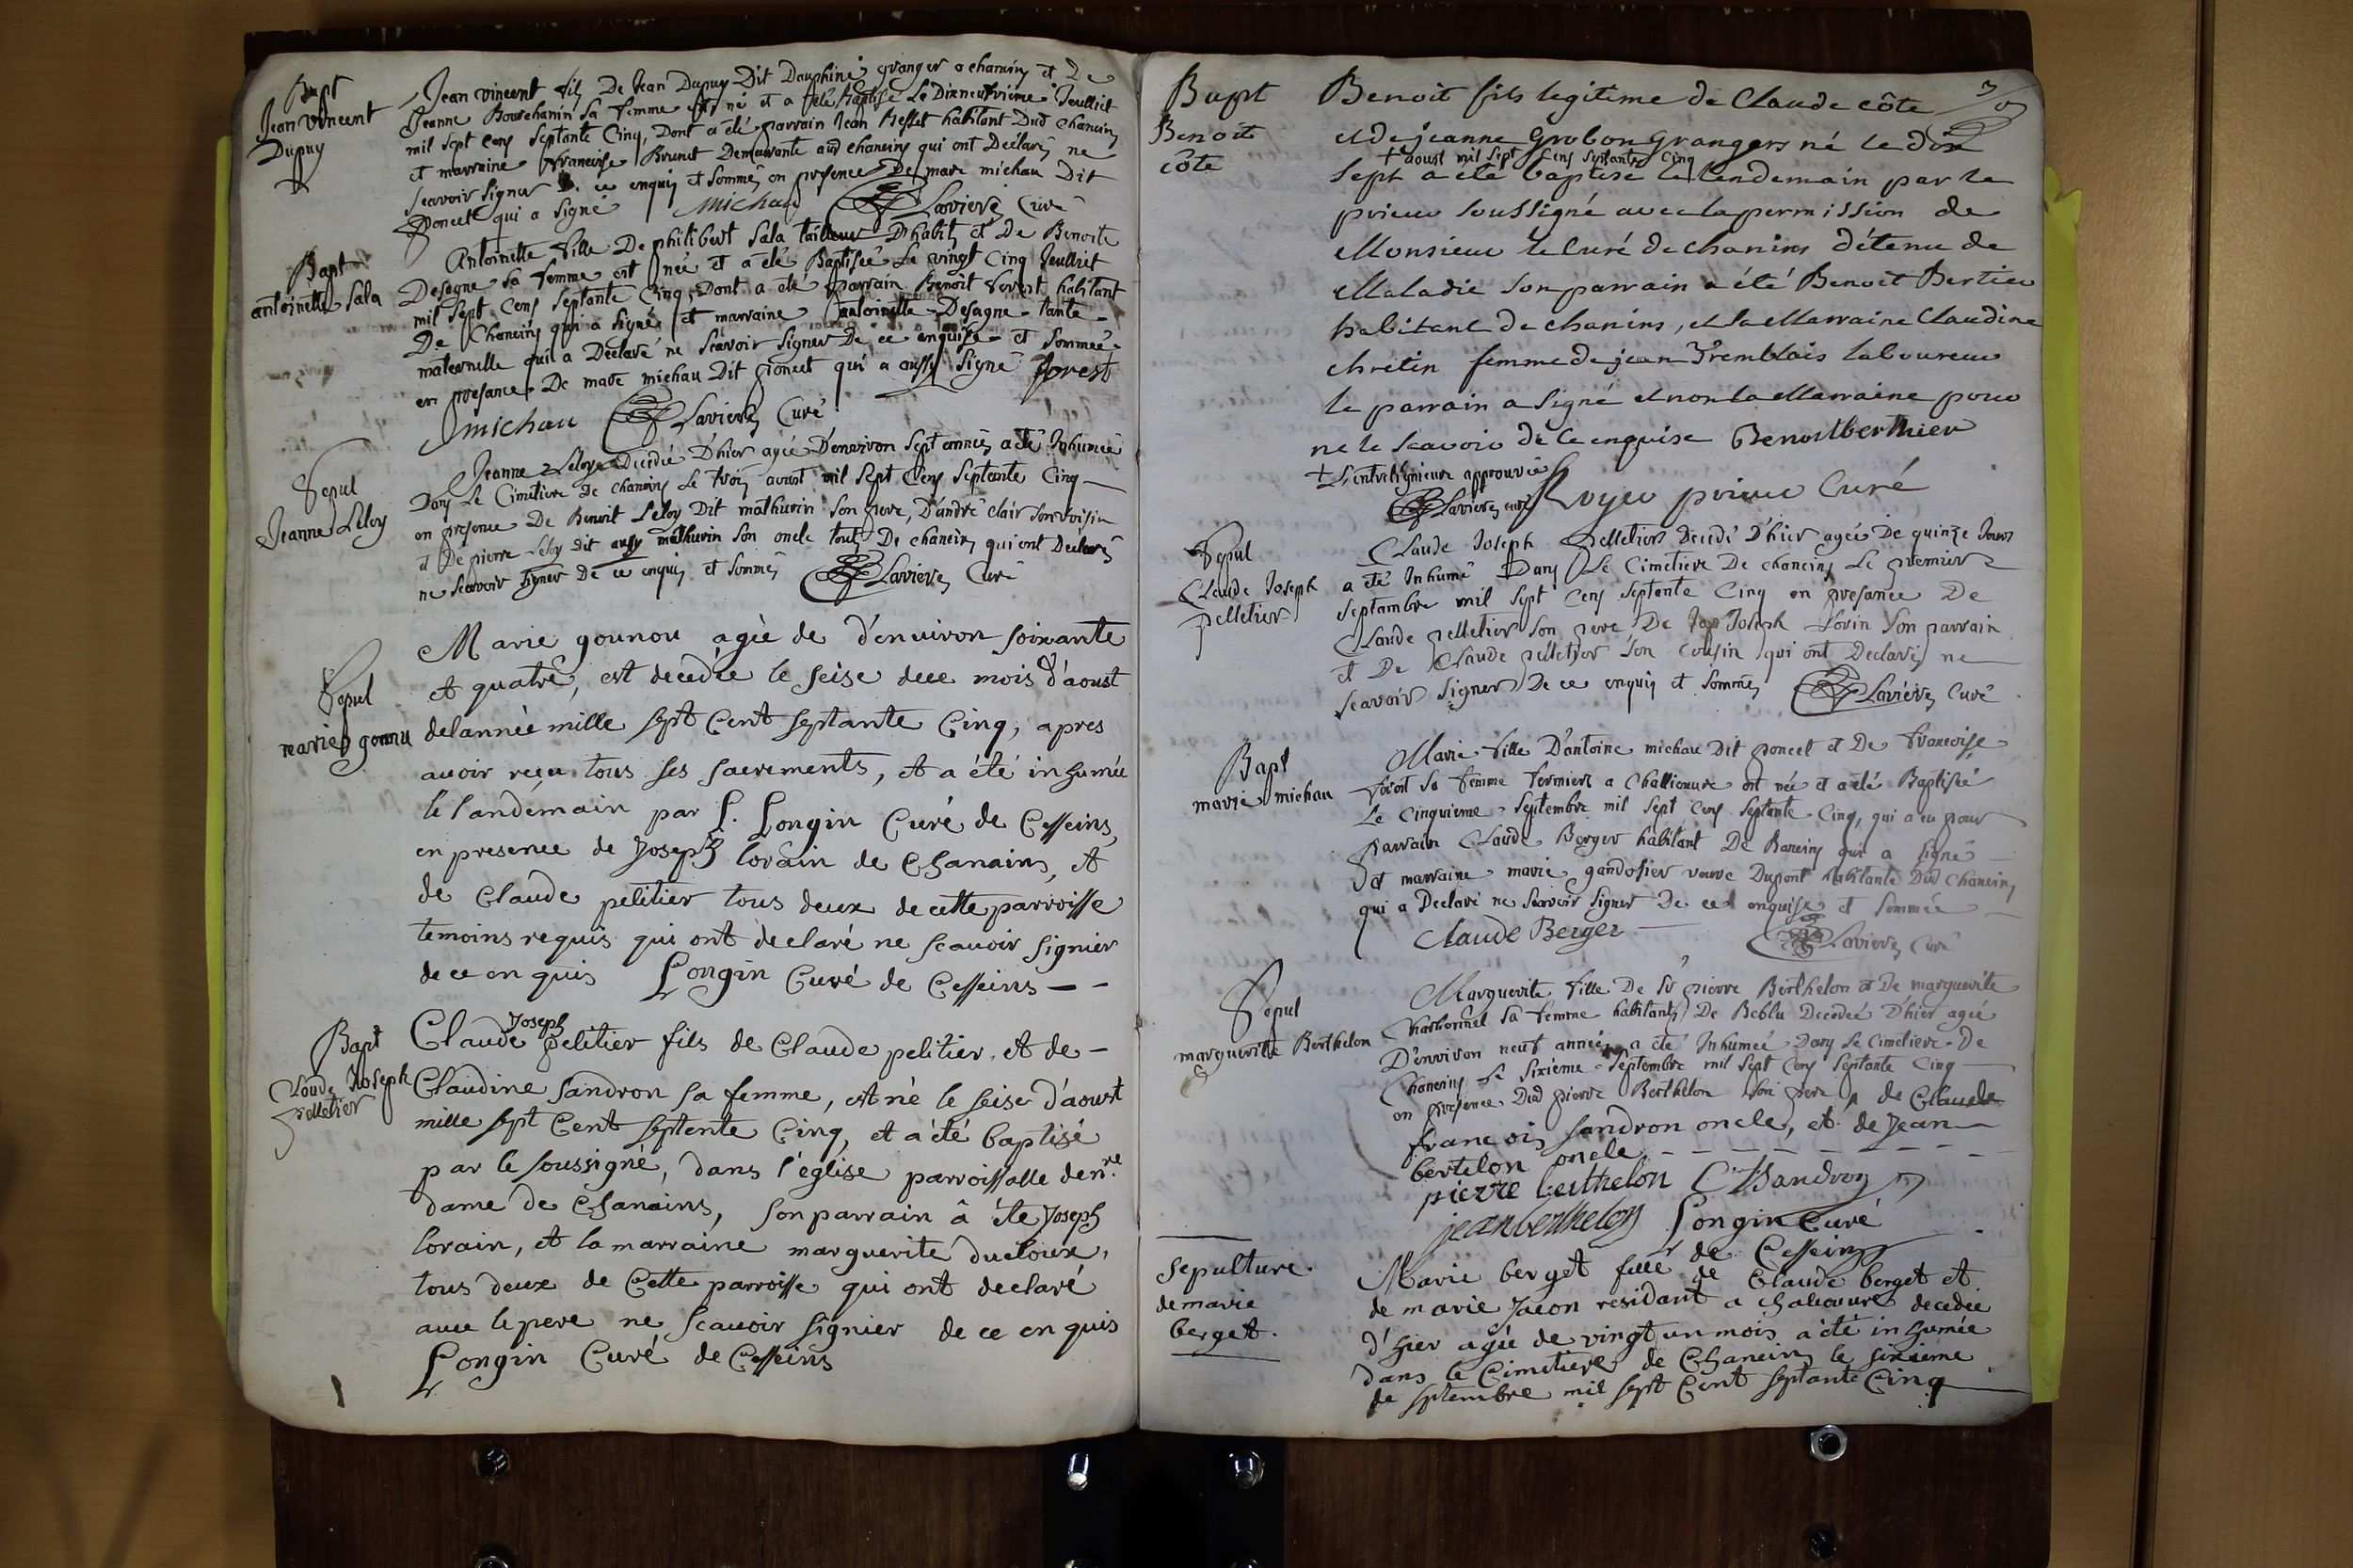 Bapt
Jean vincent
Dupuy
Jean vincent fils De Jean Dupuy Dit Dauphiné granger a chanins et De
Jeanne Bourchanin Sa femme est né et a été Baptisé Le Dixneufvieme Jeulliet
mil sept cens septante Cinq, Dont a été parrain Jean habitant Dud chaneins
et marraine francoise Brunet Demeurante aud chaneins qui ont Déclarés ne
scavoir signer De ce enquis et sommés en presence De marc michau Dit
Poncet qui a signé michau Lavieres Curé
Bapt
antoinette Sala
Antoinette fille De philibert Sala tailleur D'habits et De Benoite
Desagne Sa femme est née et a été Baptisée Le vingt Cinq Jeulliet
mil Sept Cens Septante Cinq, Dont a été parrain Benoit forest habitant
De Chaneins qui a signé et marraine antoinette Desagne tante
maternelle qui a Declaré ne scavoir signer De ce enquise et sommée
en presance De marc michau Dit poncet qui a aussy signé forest
michau Lavieres Curé
Sepul
Jeanne Leloy
Jeanne Leloy Decedée D'hier agée D'environ Sept années a été Inhumée
Dans Le Cimetiere De chaneins Le trois aoust mil Sept Cens Septante Cinq
en presence De Benoit Leloy Dit mathurin Son pere, D'andré clair Son voisin
et De pierre Leloy dit aussy mathurin Son oncle tous De chaneins qui ont Declarés
ne Scavoir signer De ce enquis et sommés Lavieres Curé
Sepul
marie gounu
Marie gounou agée de d'enuiron soixante
et quatre, est decedée le seise dece mois d'aoust
delannée mille sept Cent septante Cinq, apres
auoir reçu tous ses sacrements, et a été inhumée
le landemain par L. Longin Curé de Cesseins,
en presence de Joseph lorain de Chanains, et
de Claude pelitier tous deux de cette parroisse
temoins requis qui ont declaré ne scauoir signier
de ce en quis Longin Curé de Cesseins
Bapt
Claude Joseph
pelletier
Joseph
Claude pelitier fils de Claude pelitier, et de
Claudine sandron sa femme, est né le seise d'aoust
mille sept Cent septente Cinq, et a été baptisé
par le soussigné, dans l'église parroissalle de nre
dame de Chanains, son parrain â été Joseph
lorain, et la marraine marguerite ducloux,
tous deux de Cette parroisse qui ont declaré
auec le pere ne scauoir signier de ce en quis
Longin Curé de Cesseins
Bapt
Benoit
côte
Benoit fils legitime de Claude côte
et de jeanne Grobon Grangers né le dix
+ aoust mil sept Cens septante Cinq
sept a été baptisé le lendemain par le
prieur soussigné avec la permission de
Monsieur le Curé de chanins détenu de
Maladie son parrain a été Benoit Bertier
habitant de chanins, et sa Marraine Claudine
chretin femme de jean Tremblais laboureur
le parrain a signé et non la Marraine pour
ne le scavoir de ce enquise Benoit berthier
+ L'entreligneure approuvée
Lavieres curé Royer prieur Curé
Sepul
Claude Joseph
pelletier
Claude Joseph Pelletier Decedé D'hier agée De quinze Jours
a été Inhumé Dans Le Cimetiere De chaneins Le premier
septambre mil sept Cens septante Cinq en presance De
Claude pelletier Son pere De Joseph Lorin Son parrain
et De Claude pelletier Son Cousin qui ont Declarés ne
scavoir signer De ce enquis et sommés Lavieres Curé
Bapt
marie michau
Marie fille D'antoine michau Dit poncet et De francoise
forest Sa femme fermiers a Challiouvre est née et a été Baptisée
Le Cinquieme Septembre mil sept Cens Septante Cinq, qui a eu pour
parrain Claude Berger habitant De Baneins qui a signé
et marraine marie gandosier veuve Dupont habitante Dud Chaneins
qui a Declaré ne scavoir signer De ce enquise et sommée
Claude Berger Lavieres Curé
Sepul
marguerite Berthelon
Marguerite fille De Sr pierre Berthelon et De marguerite
Charbonnel Sa femme habitants De Beblu Decedée D'hier agée
D'environ neuf années a été Inhumée Dans Le Cimetiere De
Chaneins Le Sixieme Septembre mil sept Cens Septante Cinq
en presence Dud pierre Berthelon Son pere, de Claude
francois sandron oncle, et de Jean
bertelon oncle
pierre berthelon C f Sandron
jean berthelon Longin Curé
de Cesseins
Sepulture
de marie
berget.
Marie berget fille de Claude berget et
de marie Jacon residant a chaliouure decedée
d'hier agée de vingt un mois a été inhumée
dans le Cimetiere de Chaneins le sixieme
de septembre mil sept Cent septante Cinq